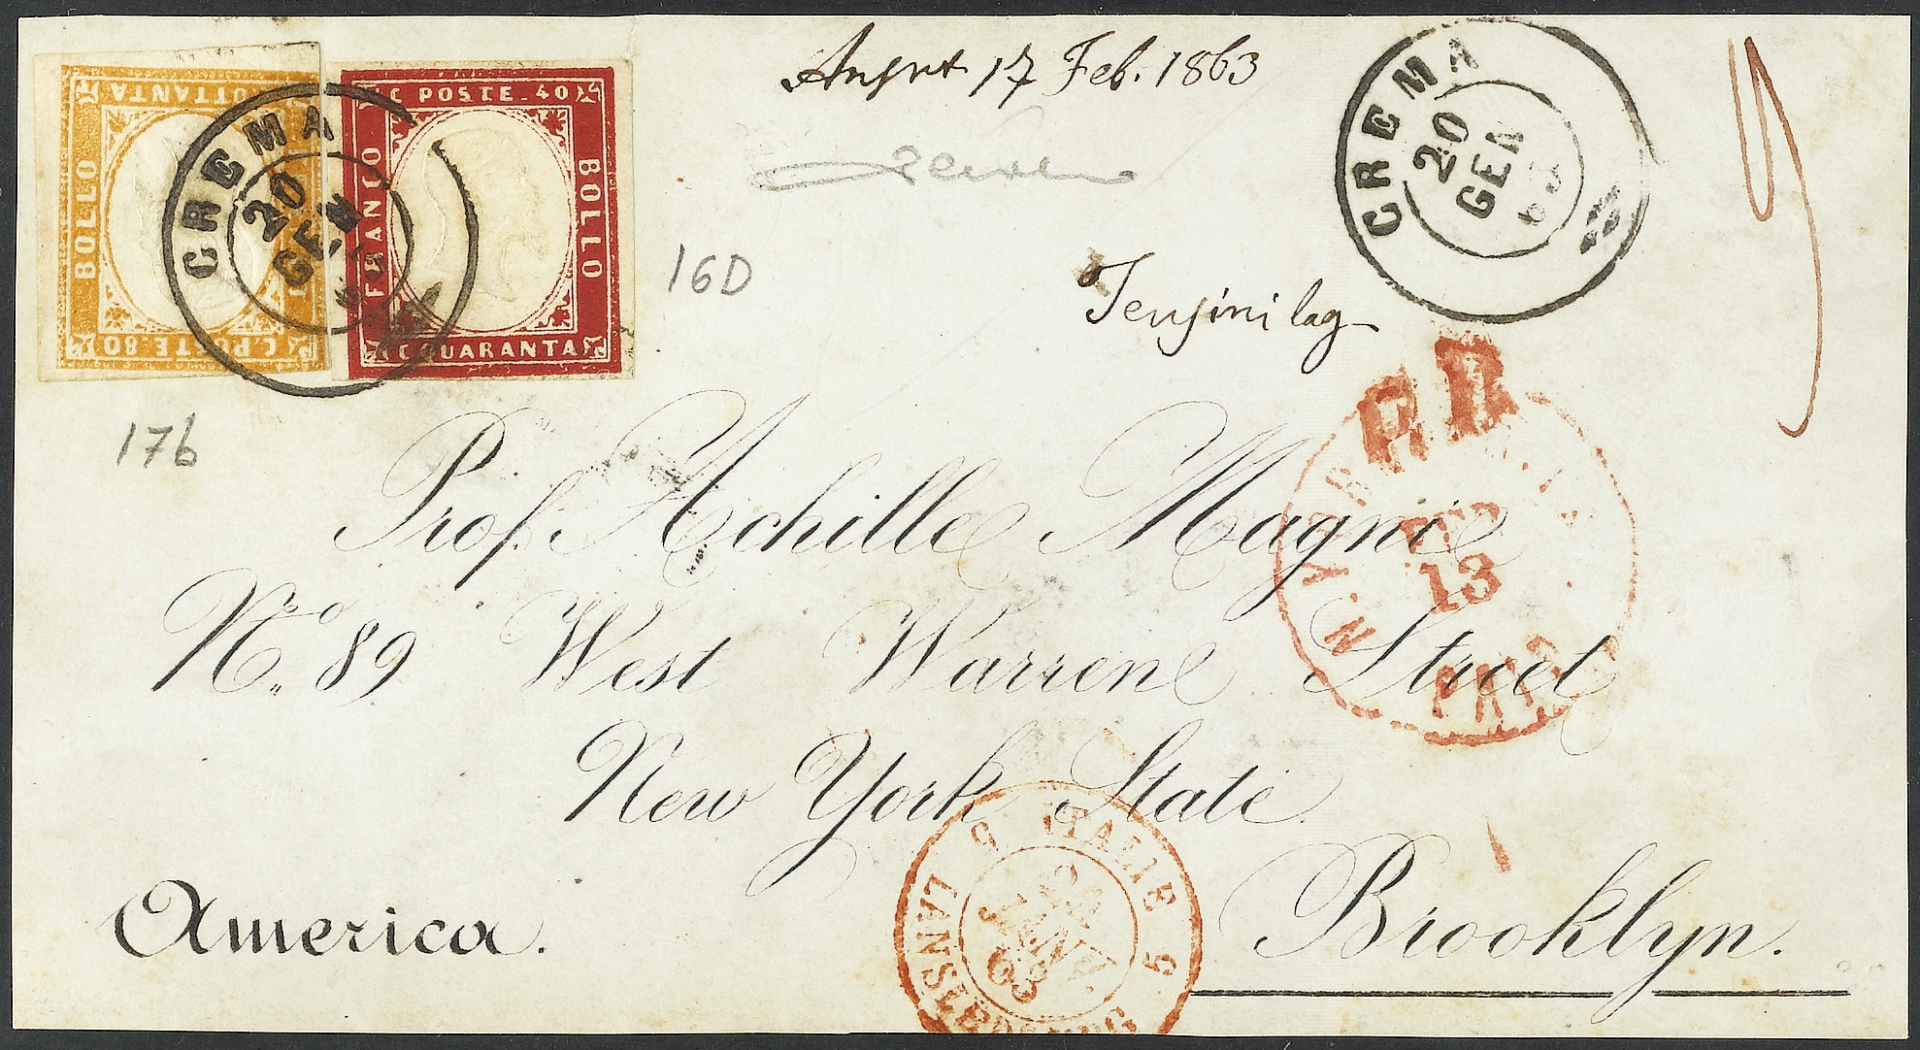 17 Feb. 1863
C. OTTANTA
BOLLO
C. POSTE. 80
C. POSTE. 40
FRANCO
BOLLO
C. QUARANTA
CREMA
20
GEN
63
CREMA
20
GEN
63
9
16D
17b
P.D.
Prof. Achille Magni
No. 89 West Warren Street
New York State
Brooklyn.
America.
N. YORK
FEB
13
PAID
5 ITALIE 5
24
JANV.
63
LANSLEBOURG